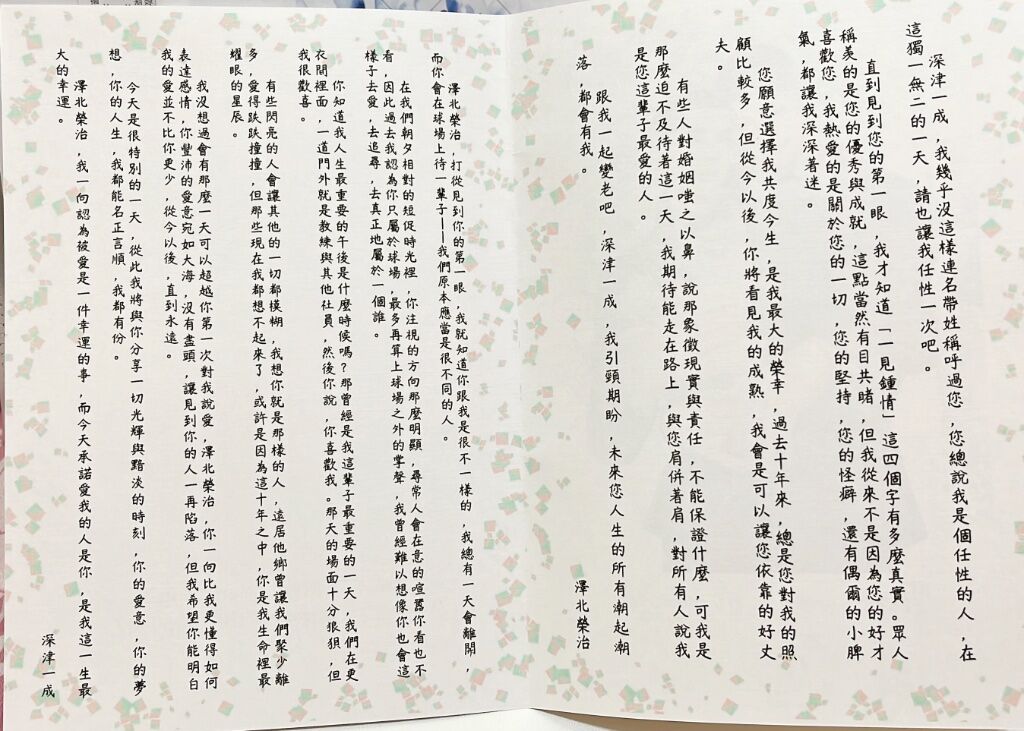 深津一成，我幾乎沒這樣連名帶姓稱呼過您，您總說我是個任性的人，在
這獨一無二的一天，請也讓我任性一次吧。
直到見到您的第一眼，我才知道「一見鍾情」這四個字有多麼真實。眾人
稱羨的是您的優秀與成就，這點當然有目共睹，但我從來不是因為您的好才
喜歡您，我熱愛的是關於您的一切，您的堅持，您的怪癖，還有偶爾的小脾
氣，都讓我深深著迷。
您願意選擇我共度今生，是我最大的榮幸，過去十年來，總是您對我的照
顧比較多，但從今以後，你將看見我的成熟，我會是可以讓您依靠的好丈
夫。
有些人對婚姻嗤之以鼻，說那象徵現實與責任，不能保證什麼，可我是
那麼迫不及待著這一天，我期待能走在路上，與您肩併著肩，對所有人說我
是您這輩子最愛的人。
跟我一起變老吧，深津一成，我引頸期盼，未來您人生的所有潮起潮
落，都會有我。
澤北榮治
澤北榮治，打從見到你的第一眼，我就知道你跟我是很不一樣的，我總有一天會離開，
而你會在球場上待一輩子——我們原本應當是很不同的人。
在我們朝夕相對的短促時光裡，你注視的方向那麼明顯，尋常人會在意的喧囂你看也不
看，因此過去我認為你只屬於球場，最多再算上球場之外的掌聲，我曾經難以想像你也會這
樣子去愛，去追尋，去真正地屬於一個誰。
你知道我人生最重要的午後是什麼時候嗎？那曾經是我這輩子最重要的一天，我們在更
衣間裡面，一道門外就是教練與其他社員，然後你說，你喜歡我。那天的場面十分狼狽，但
我很歡喜。
有些閃亮的人會讓其他的一切都模糊，我想你就是那樣的人，遠居他鄉曾讓我們聚少離
多，愛得跌跌撞撞，但那些現在我都想不起來了，或許是因為這十年之中，你是我生命裡最
耀眼的星辰。
我沒想過會有那麼一天可以超越你第一次對我說愛，澤北榮治，你一向比我更懂得如何
表達感情，你豐沛的愛意宛如大海，沒有盡頭，讓見到你的人一再陷落，但我希望你能明白
我的愛並不比你更少，從今以後，直到永遠。
今天是很特別的一天，從此我將與你分享一切光輝與黯淡的時刻，你的愛意，你的夢
想，你的人生，我都能名正言順，我都有份。
澤北榮治，我一向認為被愛是一件幸運的事，而今天承諾愛我的人是你，是我這一生最
大的幸運。
深津一成